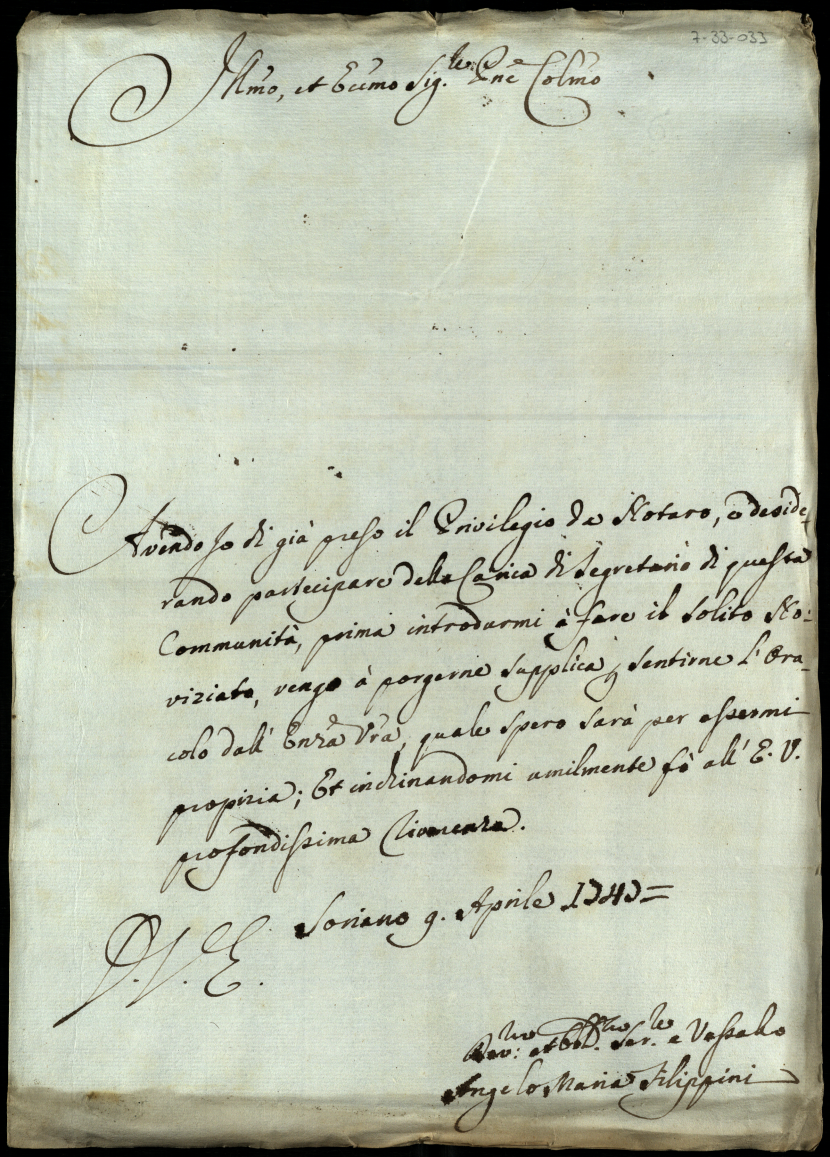 7-33-033
Illmo, et Eccmo Sig.re Pne Colmo
Avendo Io di già preso il Privilegio da Notaro, e deside,
rando partecipare della Carica di Segretario di questa
Communità, prima introdurmi à fare il solito No:
viziato, vengo à porgerne supplica, e sentirne l'Ora,
colo dall' Enza Vra, quale spero sarà per essermi
propizia; Et inchinandomi umilmente fò all' E. V.
profondissima Riverenza.
Soriano 9. Aprile 1747=
D. V. E.
Dev:mo et Obb.mo Ser.re e Vassallo
Angelo Maria Filippini